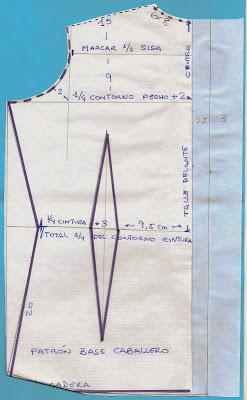 15
6 a 8
MARCAR 1/2 SISA
CENTRO
9
2
1/4 CONTORNO PECHO + 2 cm
2,5
5
TALLE DELANTE
1/4 CINTURA + 3
9,5 cm
TOTAL 1/4 DEL CONTORNO CINTURA
20
PATRÓN BASE CABALLERO
CADERA